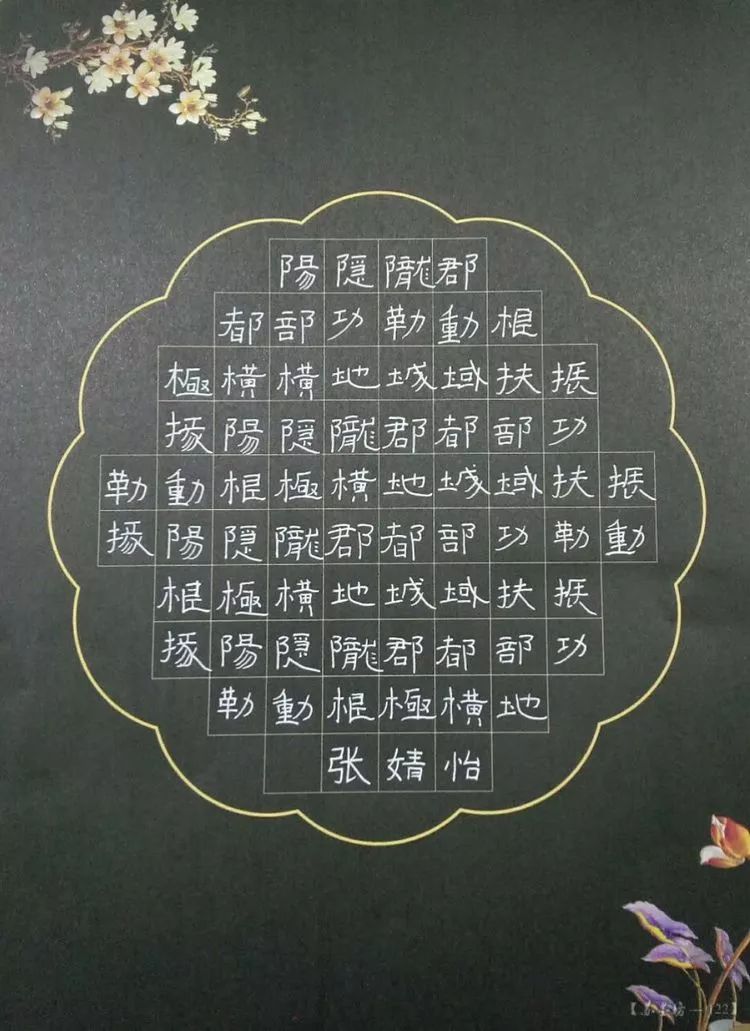 陽隠隴郡
都部功勒動根
極橫橫地城域扶振
掾陽隠隴郡都部功
勒動根極橫地城域扶振
掾陽隠隴郡都部功勒動
根極橫地城域扶振
掾陽隠隴郡都部功
勒動根極橫地
张婧怡